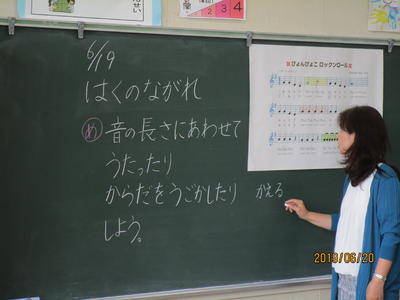 6/19
はくのながれ
め 音の長さにあわせて
うたったり
からだをうごかしたり かえる
しよう。
ぴょんぴょこ ロックンロール
2 3 4
2019/06/20